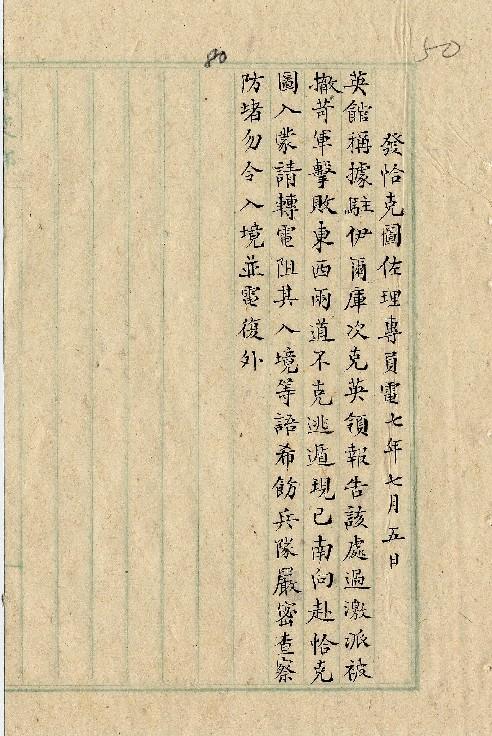 50
80
發恰克圖佐理專員電七年七月五日
英館稱據駐伊爾庫次克英領報告該處過激派被
撤苛軍擊敗東西兩道不克逃遁現已南向赴恰克
圖入蒙請轉電阻其入境等語希飭兵隊嚴密查察
防堵勿令入境並電復外